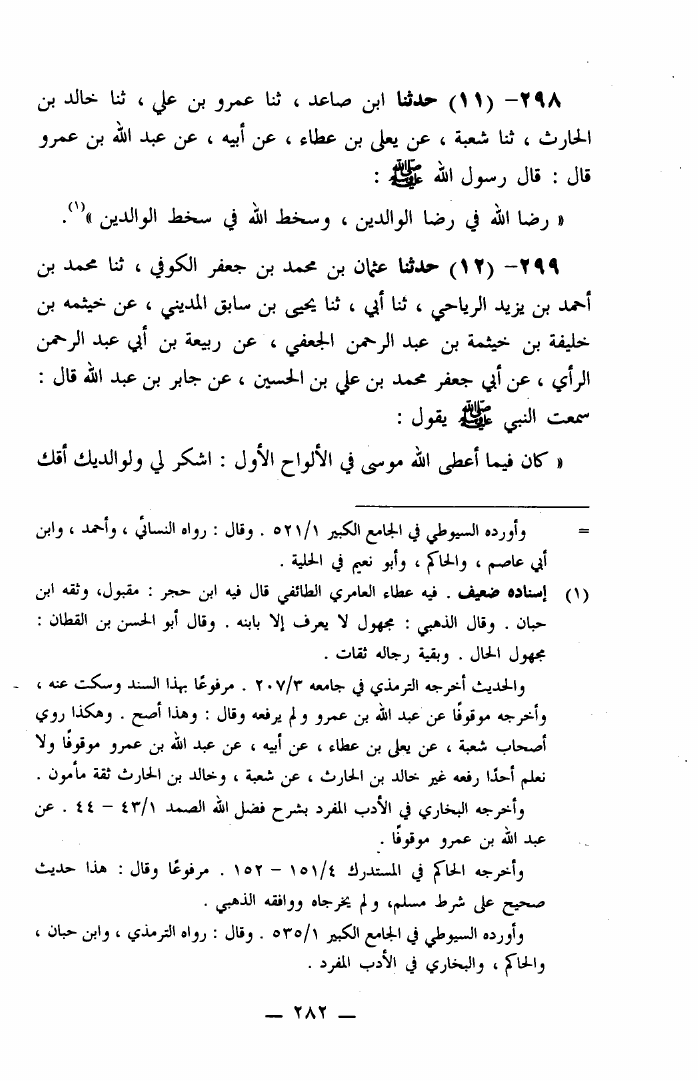 ٢٩٨- (١١) حدثنا ابن صاعد ، ثنا عمرو بن علي ، ثنا خالد بن
الحارث ، ثنا شعبة ، عن يعلى بن عطاء ، عن أبيه ، عن عبد الله بن عمرو
قال : قال رسول الله ﷺ :
« رضا الله في رضا الوالدين ، وسخط الله في سخط الوالدين »(١).
٢٩٩- (١٢) حدثنا عثمان بن محمد بن جعفر الكوفي ، ثنا محمد بن
أحمد بن يزيد الرياحي ، ثنا أبي ، ثنا يحيى بن سابق المديني ، عن خيثمه بن
خليفة بن خيثمة بن عبد الرحمن الجعفي ، عن ربيعة بن أبي عبد الرحمن
الرأي ، عن أبي جعفر محمد بن علي بن الحسين ، عن جابر بن عبد الله قال :
سمعت النبي ﷺ يقول :
« كان فيما أعطى الله موسى في الألواح الأول : اشكر لي ولوالديك أقك
= وأورده السيوطي في الجامع الكبير ٥٢١/١ . وقال : رواه النسائي ، وأحمد ، وابن
أبي عاصم ، والحاكم ، وأبو نعيم في الحلية .
(١) إسناده ضعيف . فيه عطاء العامري الطائفي قال فيه ابن حجر : مقبول، وثقه ابن
حبان . وقال الذهبي : مجهول لا يعرف إلا بابنه . وقال أبو الحسن بن القطان :
مجهول الحال . وبقية رجاله ثقات .
والحديث أخرجه الترمذي في جامعه ٢٠٧/٣ . مرفوعًا بهذا السند وسكت عنه ،
وأخرجه موقوفًا عن عبد الله بن عمرو ولم يرفعه وقال : وهذا أصح . وهكذا روي
أصحاب شعبة ، عن يعلى بن عطاء ، عن أبيه ، عن عبد الله بن عمرو موقوفًا ولا
نعلم أحدًا رفعه غير خالد بن الحارث ، عن شعبة ، وخالد بن الحارث ثقة مأمون .
وأخرجه البخاري في الأدب المفرد بشرح فضل الله الصمد ٤٣/١ – ٤٤ . عن
عبد الله بن عمرو موقوفًا .
وأخرجه الحاكم في المستدرك ١٥١/٤ – ١٥٢ . مرفوعًا وقال : هذا حديث
صحيح على شرط مسلم، ولم يخرجاه ووافقه الذهبي .
وأورده السيوطي في الجامع الكبير ٥٣٥/١ . وقال : رواه الترمذي ، وابن حبان ،
والحاكم ، والبخاري في الأدب المفرد .
— ٢٨٢ —